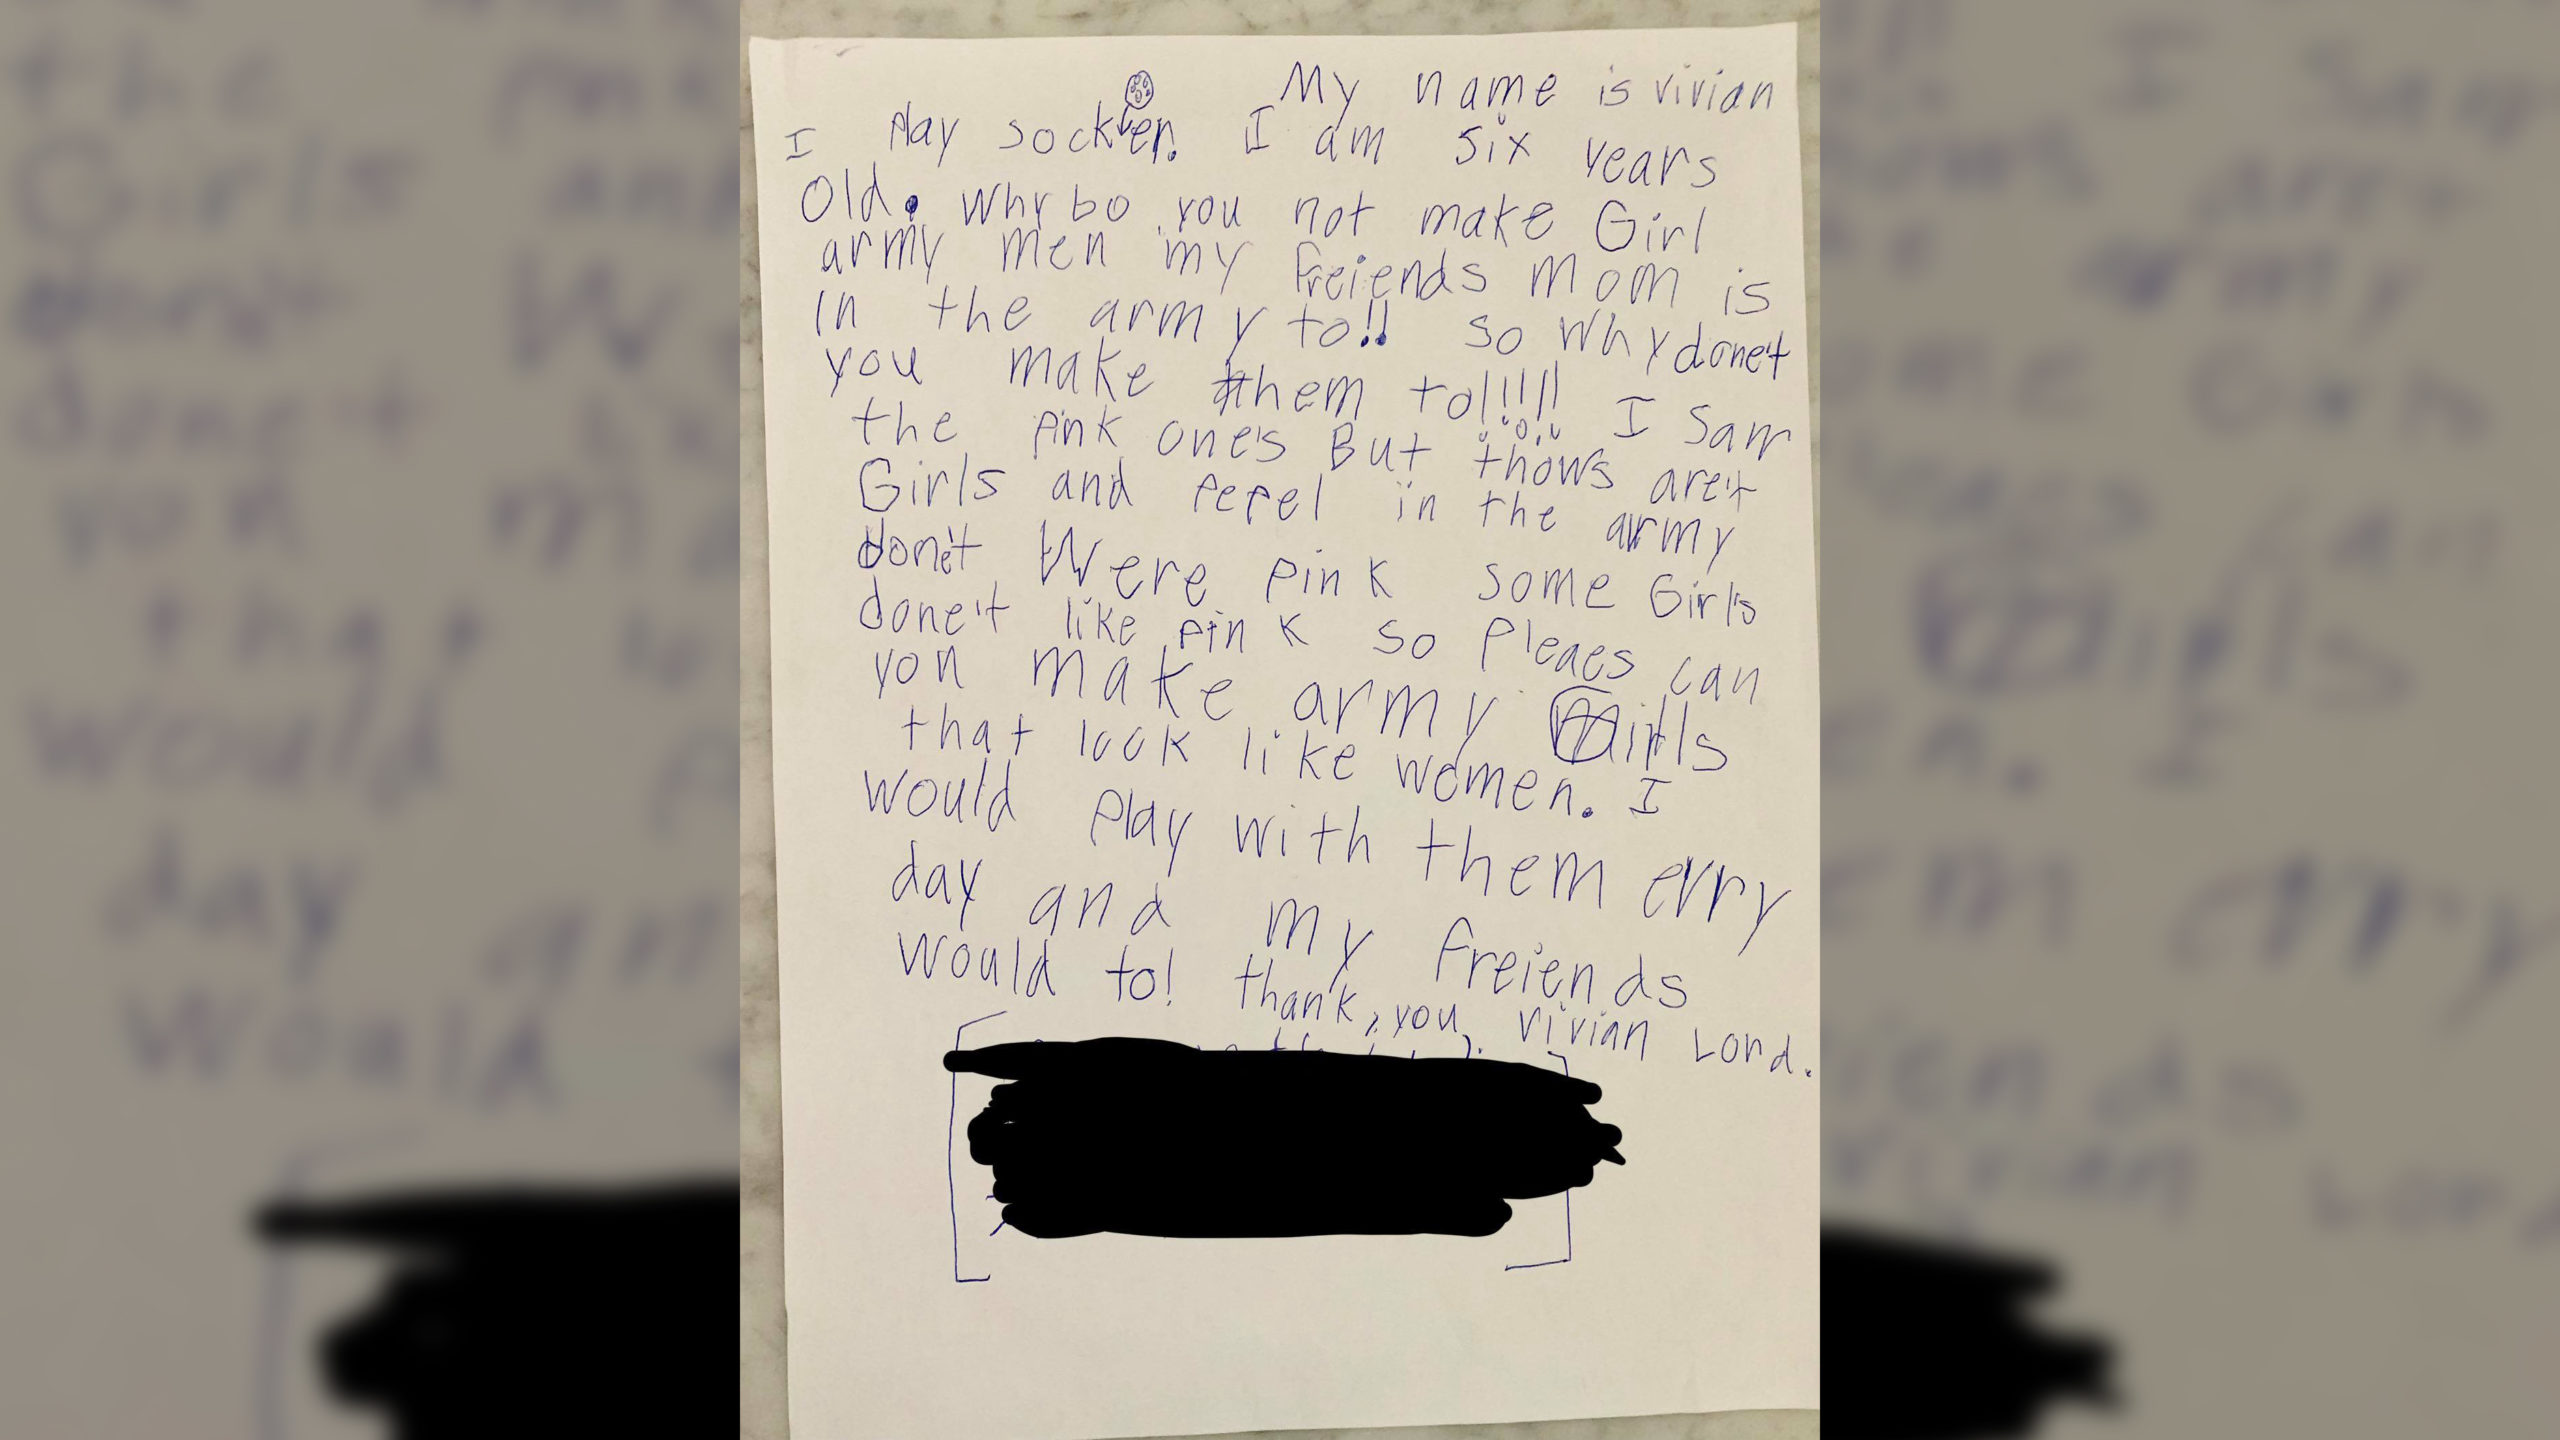 My name is vivian
I Play socker. I am six years
old. Why bo you not make Girl
army men my freiends mom is
in the army to!! so why donet
you make them to!!!! I Saw
the Pink one's But thows are't
Girls and PePel in the army
don't Were Pink some Girls
done't like Pink so Pleaes can
you make army Girls
that look like women. I
would Play with them evry
day and my freiends
would to! thank, you, vivian Lord.